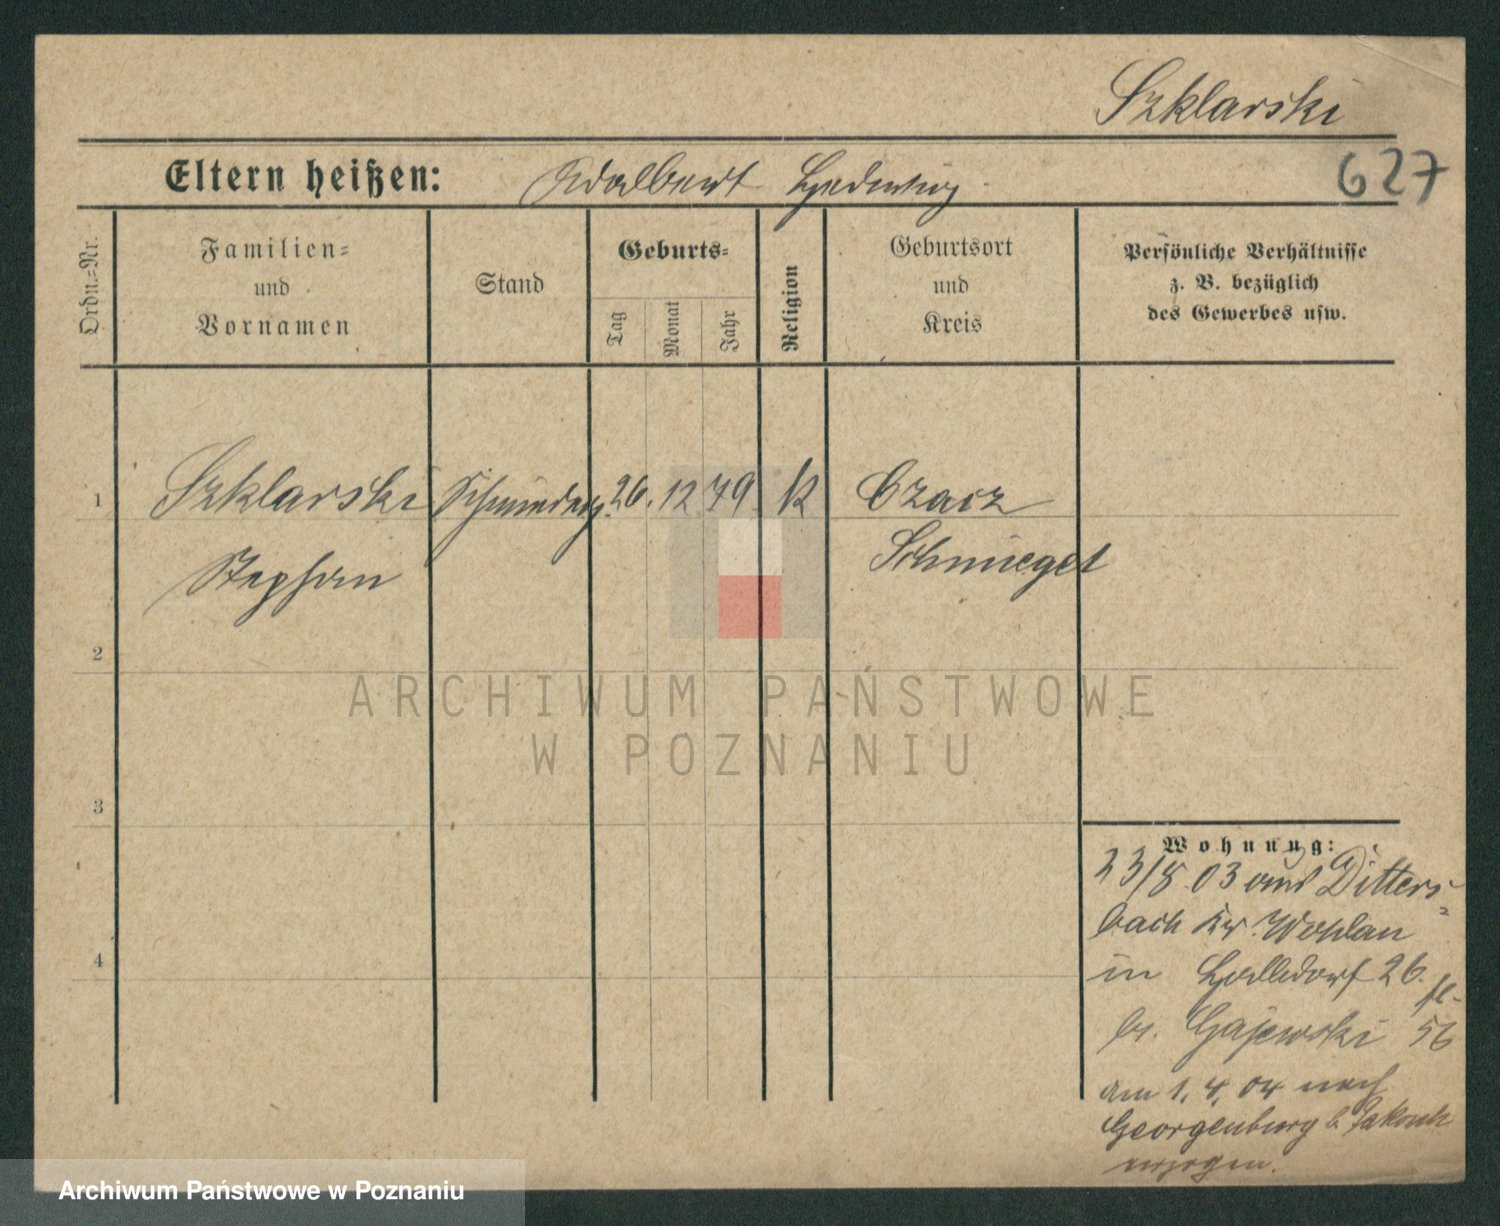 Szklarski
627
Eltern heißen: Adalbert Hedwig
Ordn.=Nr.
Familien=
und
Vornamen
Stand
Geburts=
Tag
Monat
Jahr
Religion
Geburtsort
und
Kreis
Persönliche Verhältnisse
z. B. bezüglich
des Gewerbes usw.
1
Szklarski
26. 12 79
K
Czacz
Stephan
Schmiegel
2
3
4
Wohnung:
23/8.03 aus Ditters=
bach Kr. Wohlau
in 26.
b. Gajewski 56
am 1. 4. 04 nach
Georgenburg b.
verzogen.
ARCHIWUM PAŃSTWOWE
W POZNANIU
Archiwum Państwowe w Poznaniu